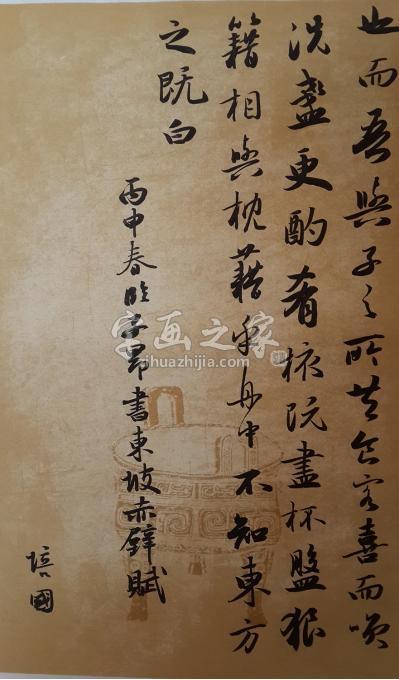 也而吾與子之所共食客喜而笑
洗盞更酌肴核既盡杯盤狼
籍相與枕藉乎舟中不知東方
之既白
丙申春臨子昂書東坡赤壁賦
培國
字画之家
zihuazhijia.com